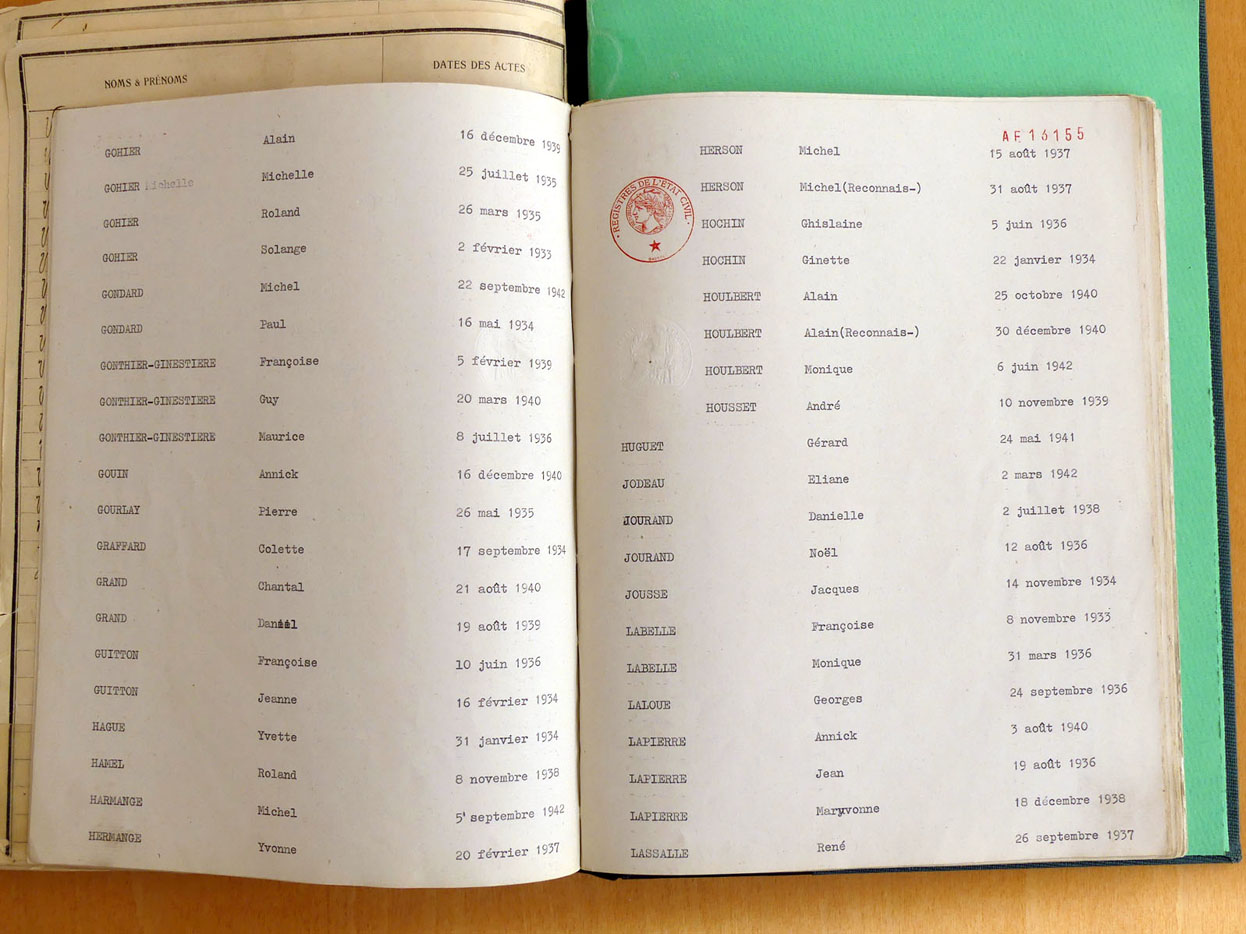 NOMS & PRÉNOMS DATES DES ACTES
GOHIER Alain 16 décembre 1939
GOHIER Michelle Michelle 25 juillet 1935
GOHIER Roland 26 mars 1935
GOHIER Solange 2 février 1933
GONDARD Michel 22 septembre 1942
GONDARD Paul 16 mai 1934
GONTHIER-GINESTIERE Françoise 5 février 1939
GONTHIER-GINESTIERE Guy 20 mars 1940
GONTHIER-GINESTIERE Maurice 8 juillet 1936
GOUIN Annick 16 décembre 1940
GOURLAY Pierre 26 mai 1935
GRAFFARD Colette 17 septembre 1934
GRAND Chantal 21 août 1940
GRAND 19 août 1939
GUITTON Françoise 10 juin 1936
GUITTON Jeanne 16 février 1934
HAGUE Yvette 31 janvier 1934
HAMEL Roland 8 novembre 1938
HARMANGE Michel 5 septembre 1942
HERMANGE Yvonne 20 février 1937
AF 16155
HERSON Michel 15 août 1937
HERSON Michel(Reconnais-) 31 août 1937
REGISTRES DE L'ETAT CIVIL
HOCHIN Ghislaine 5 juin 1936
HOCHIN Ginette 22 janvier 1934
HOULBERT Alain 25 octobre 1940
HOULBERT Alain(Reconnais-) 30 décembre 1940
HOULBERT Monique 6 juin 1942
HOUSSET André 10 novembre 1939
HUGUET Gérard 24 mai 1941
JODEAU Eliane 2 mars 1942
JOURAND Danielle 2 juillet 1938
JOURAND Noël 12 août 1936
JOUSSE Jacques 14 novembre 1934
LABELLE Françoise 8 novembre 1933
LABELLE Monique 31 mars 1936
LALOUE Georges 24 septembre 1936
LAPIERRE Annick 3 août 1940
LAPIERRE Jean 19 août 1936
LAPIERRE Maryvonne 18 décembre 1938
LASSALLE René 26 septembre 1937